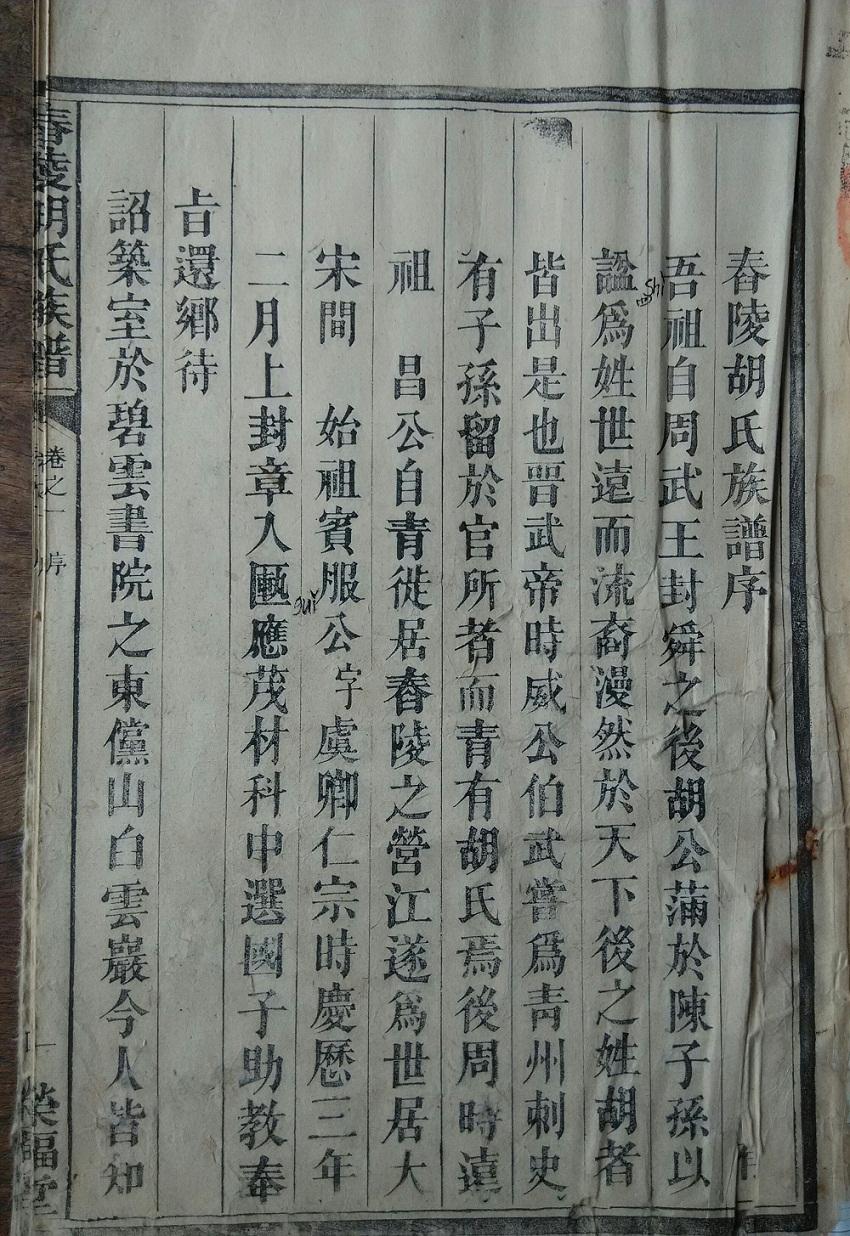 舂陵胡氏族譜序
吾祖自周武王封舜之後胡公滿於陳子孫以
諡爲姓世遠而流裔漫然於天下後之姓胡者
皆出是也晉武帝時威公伯武嘗爲青州刺史
有子孫留於官所者而青有胡氏焉後周時遠
祖　昌公自青徙居舂陵之營江遂爲世居大
宋間　始祖賓服公字虞卿仁宗時慶歷三年
二月上封章入匭應茂材科中選國子助教奉
旨還鄉待
詔築室於碧雲書院之東儻山白雲巖今人皆知
舂陵胡氏族譜
卷之一　序
榮福堂
shi
gui